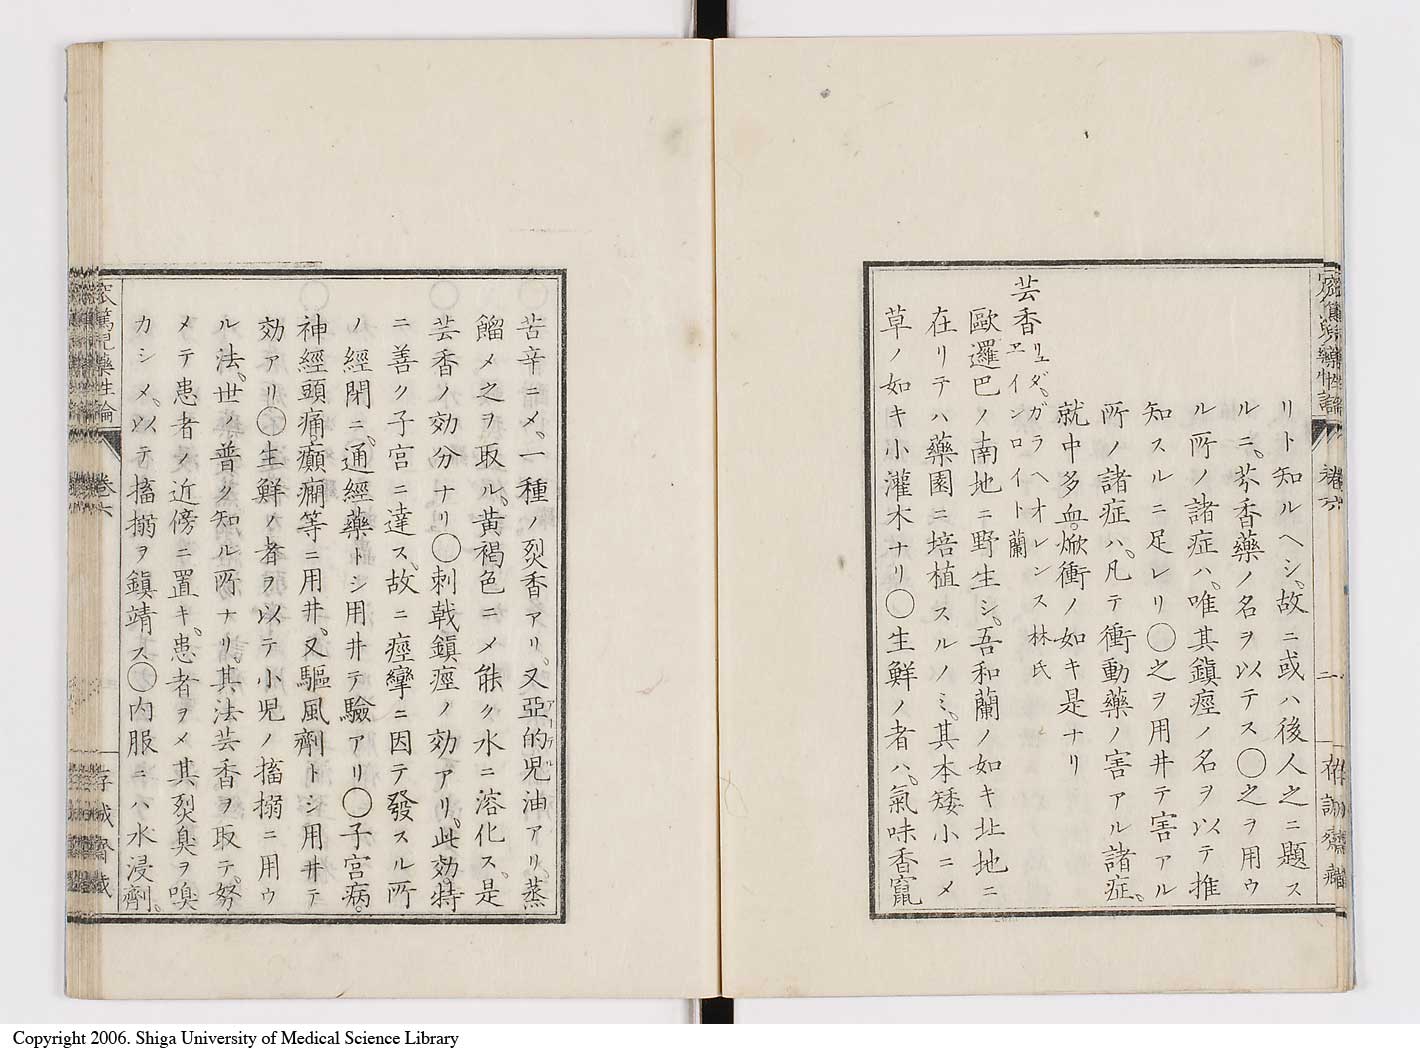 リト知ルヘシ、故ニ或ハ後人之ニ題ス
ルニ、芥香藥ノ名ヲ以テス〇之ヲ用ウ
ル所ノ諸症ハ、唯其鎮痙ノ名ヲ以テ推
知スルニ足レリ〇之ヲ用井テ害アル
所ノ諸症ハ、凡テ衝動藥ノ害アル諸症、
就中多血、焮衝ノ如キ是ナリ
芸香 リュダ、ガラヘオレンス 林氏
ヱインロイト 蘭
歐邏巴ノ南地ニ野生シ、吾和蘭ノ如キ北地ニ
在リテハ藥園ニ培植スルノミ、其本矮小ニメ
草ノ如キ小灌木ナリ〇生鮮ノ者ハ、氣味香竄
卷六
二
苦辛ニメ、一種ノ烈香アリ、又亞的児油アリ、蒸
餾メ之ヲ取ル、黄褐色ニメ能ク水ニ溶化ス、是
芸香ノ効分ナリ〇刺戟鎮痙ノ効アリ、此効特
ニ善ク子宮ニ達ス、故ニ痙攣ニ因テ發スル所
ノ經閉ニ、通經藥トシ用井テ驗アリ〇子宮病、
神經頭痛、癲癇等ニ用井、又驅風劑トシ用井テ
効アリ〇生鮮ノ者ヲ以テ小児ノ搐搦ニ用ウ
ル法、世ノ普ク知ル所ナリ、其法芸香ヲ取テ、努
メテ患者ノ近傍ニ置キ、患者ヲメ其烈臭ヲ嗅
カシメ、以テ搐搦ヲ鎮靖ス〇内服ニハ水浸劑、
篤児藥性論
卷六
Copyright 2006. Shiga University of Medical Science Library